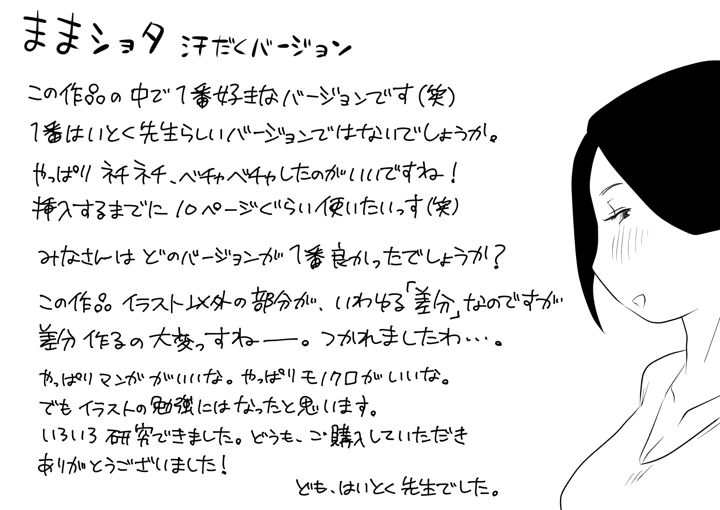 ままショタ 汗だくバージョン
この作品の中で1番好きなバージョンです(笑)
1番はいとく先生らしいバージョンではないでしょうか。
やっぱり ネチネチ、ベチャベチャしたのがいいですね!
挿入するまでに 10ページぐらい使いたいっす(笑)
みなさんは どのバージョンが 1番良かったでしょうか?
この作品 イラスト以外の部分が、いわゆる「差分」なのですが
差分作るの大変っすねー。つかれましたわ…。
やっぱりマンガがいいな。やっぱりモノクロがいいな。
でもイラストの勉強にはなったと思います。
いろいろ研究できました。どうも、ご購入していただき
ありがとうございました!
ども、はいとく先生でした。